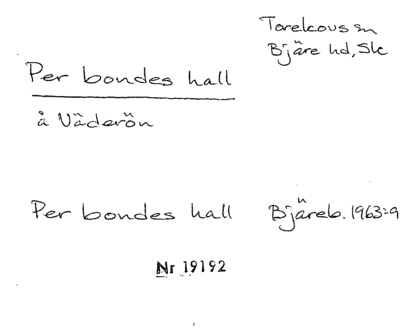 Torekovs sn
Bjäre hd, Sk
Per bondes hall
å Väderön
Per bondes hall Bjäreb. 1963:9
Nr 19192